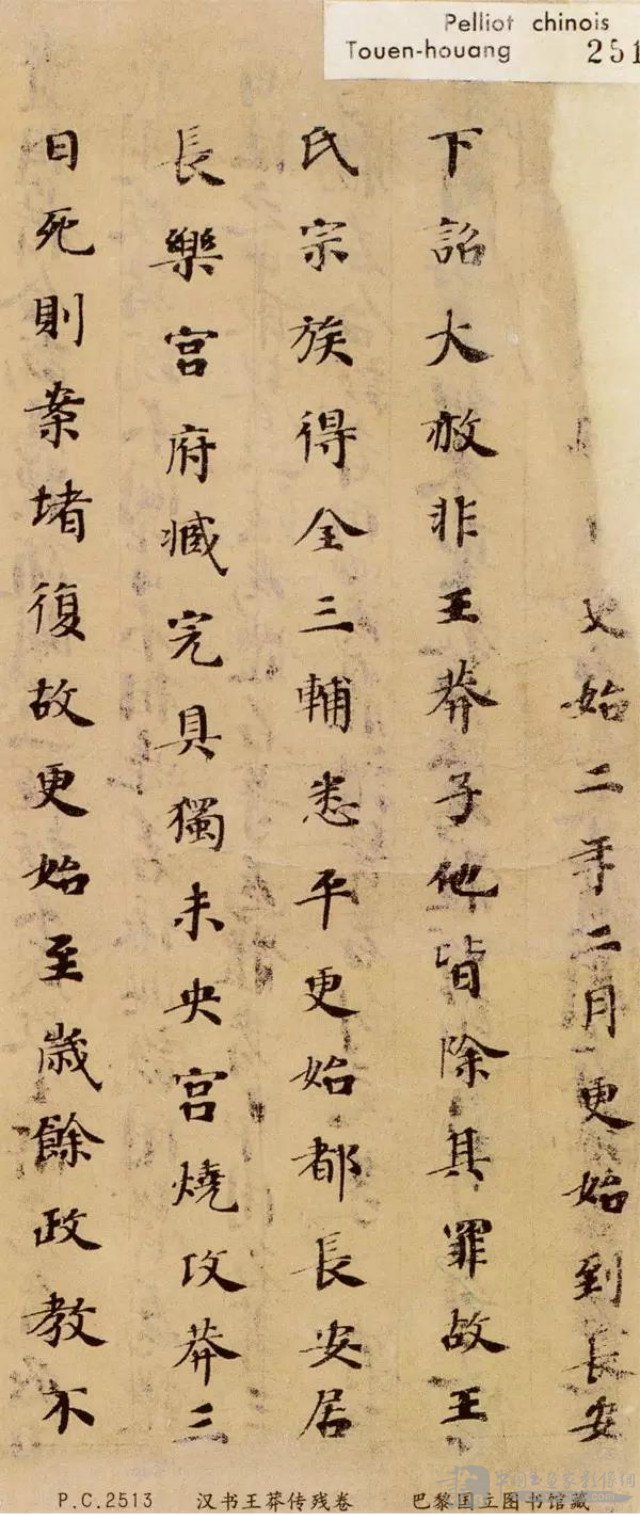 Pelliot chinois
Touen-houang 251
更始二年二月更始到長安
下詔大赦非王莽子他皆除其罪故王
氏宗族得全三輔悉平更始都長安居
長樂宮府臧完具獨未央宮燒攻莽三
日死則案堵復故更始至歲餘政教不
P.C.2513 汉书王莽传残卷 巴黎国立图书馆藏